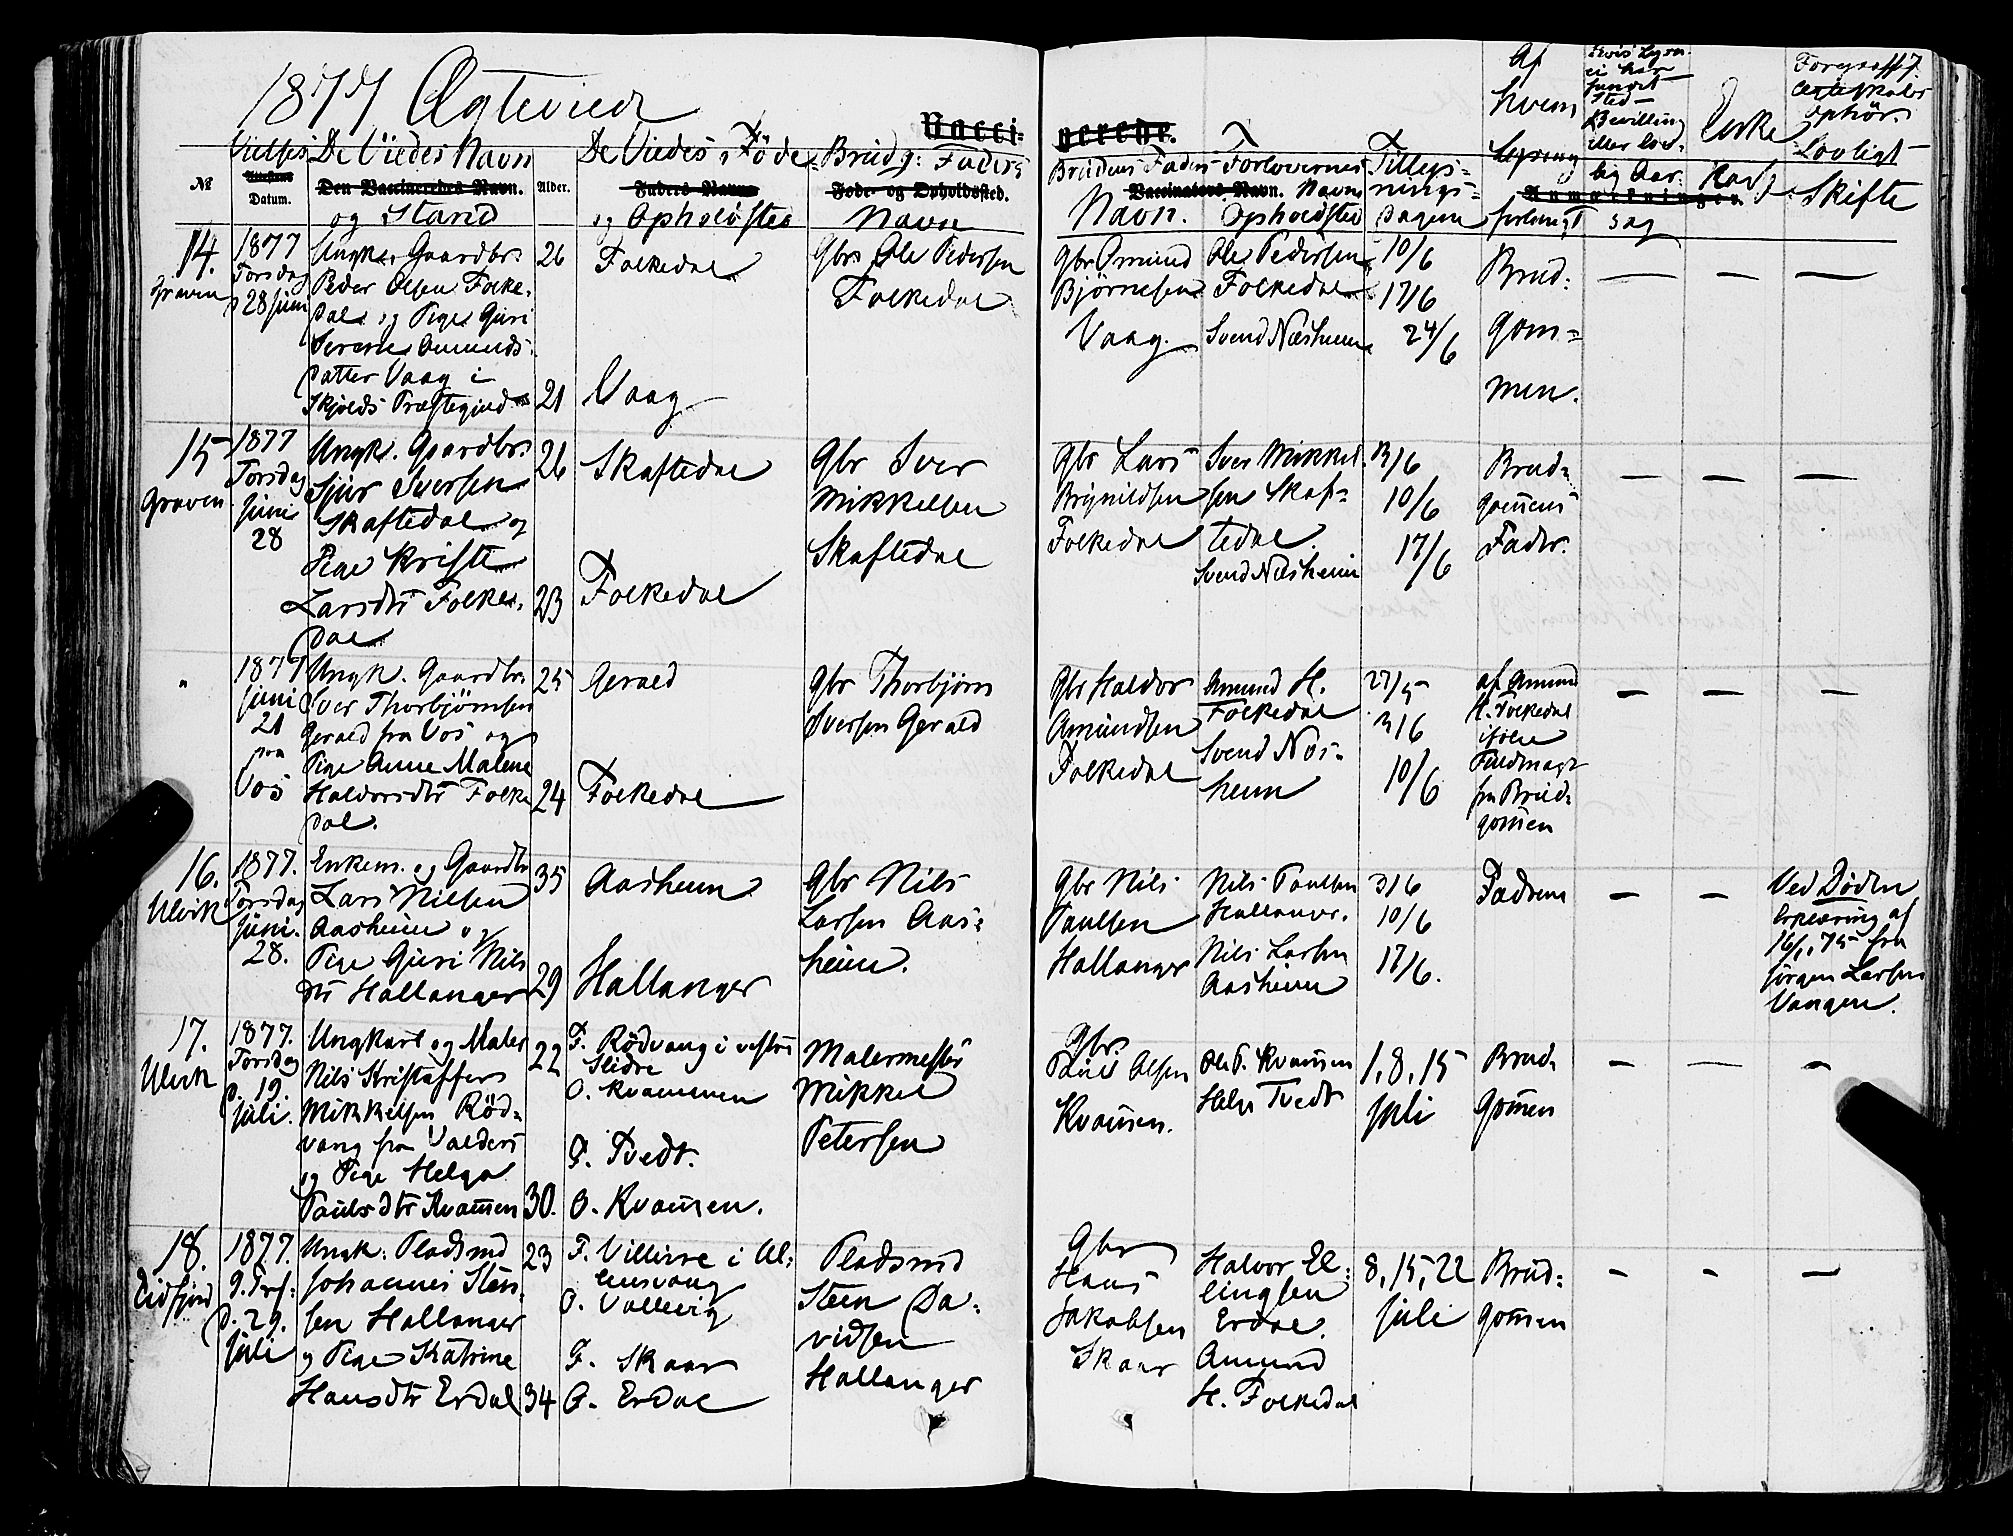 1877 Ægteviede
Vacci-
nerede.
№
Vielses
Datum.
De Viedes Navn
Den Vaccineredes Navn.
og Stand
Alder.
De Viedes Føde
Faders Navn
og Opholdsted
Brudg: Faders
Føde- og Opholdssted.
Navn
Brudens Faders
Navn.
Vaccinateurs Navn.
Forlovernes
Navn
Opholdsted
Tillys-
nings-
Dagene
Af
hvem
Lysning
forlangt
Bevilling
eller lov-
lig Aar-
sag
Enke
Anmærkninger
Forgaaff
Ægteskabs
Ophör.
Lovligt
Skifte
14.
Graven
1877
Torsdag
28 Juni
Ungk. Gaardbr.
Peder Olsen Folke-
dal og Pige Guri
Serene Amunds-
datter Vaag i
Skjolds Præstegjeld
26
21
Folkedal
Vaag
Gbr Ole Pedersen
Folkedal
Gbr Omund
Bjørnesen
Vaag.
Ole Pedersen
Folkedal
Svend Næsheim
10/6
17/6
24/6
Brud-
gom-
men.
15
Graven
1877
Torsdag
Juni
28
Ungk. Gaardbr.
Sjur Iversen
Skaftedal og
Pige Kriste
Larsdtr Folke-
dal
26
23
Skaftedal
Folkedal
Gbr Iver
Mikkelsen
Skaftedal
Gbr Lars
Brynildsen
Folkedal
Iver Mikkel-
sen Skaf-
tedal.
Svend Næsheim
3/6
10/6
17/6
Brud-
gom̄ens
Fader.
"
1877
Juni
21
paa
Vos
Ungk. Gaardbr.
Iver Thorbjörnsen
Gerald fra Vos og
Pige Anne Malene
Haldorsdtr Folke
dal.
25
24
Gerald
Folkedal
Gbr Thorbjörn
Iversen Gerald
Gbr Haldor
Amundsen
Folkedal
Amund H.
Folkedal
Svend Næs-
heim
27/5
3/6
10/6
af Amund
H. Folkedal
ifölge
Fuldmagt
fra Brud-
gom̄en
16.
Ulvik
1877.
Torsdag
Juni.
28.
Enkem. og Gaardbr
Lars Nilsen
Aasheim og
Pige Guri Nils
dtr Hallanger
35
29
Aasheim
Hallanger
Gbr Nils
Larsen Aas-
heim.
Gbr Nils
Paulsen
Hallanger
Nils Paulsen
Hallanger.
Nils Larsen
Aasheim
3/6
10/6
17/6.
Fadrene
Ved Døden
Erklæring af
16/1, 75 fra
Jørgen Larsen
Vangen.
17.
Ulvik
1877.
Torsdag
d. 19.
Juli.
Ungkarl og Maler
Nils Kristoffer
Mikkelsen Röd-
vang fra Valders
og Pige Helga
Paulsdtr Kvam̄en
22
30.
F. Rödvang i vestre
Slidre
O. Kvammen
F. Tvedt.
O. Kvam̄en.
Malermester
Mikkel
Petersen
Gbr.
Paul Olsen
Kvam̄en.
Ole P. Kvam̄en
Helge Tvedt
1, 8, 15
Juli
Brud-
gom̄en
18.
Eidfjord
1877.
d. 29.
Juli
Ungk: Pladsmd
Johannes Sten-
sen Hallanger
og Pige Katrine
Hansdtr Erdal
23
34
F. Villure i Ul-
lensvang
O. Vallevig
F. Skaar
O. Erdal
Pladsmd
Steen Da-
vidsen
Hallanger
Gbr
Hans
Jakobsen
Skaar
Halvor El-
lingsen
Erdal.
Amund
H. Folkedal
8, 15, 22
Juli
Brud-
gom̄en